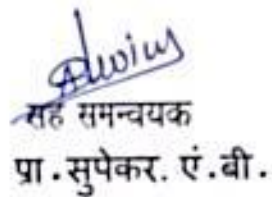 सह समन्वयक
प्रा.सुपेकर. एं.बी.